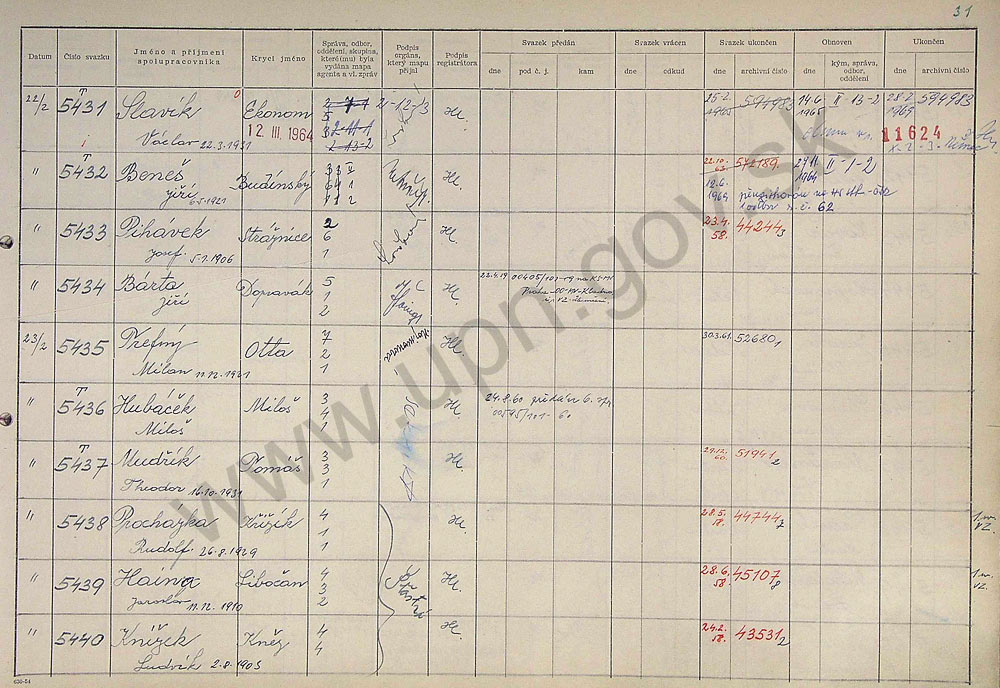 31
Datum Číslo svazku Jméno a příjmení spolupracovníka Krycí jméno Správa, odbor, oddělení, skupina, které(mu) byla vydána mapa agenta a vl. zpráv Podpis orgána, který mapu přijal Podpis registrátora Svazek předán Svazek vrácen Svazek ukončen Obnoven Ukončen
dne pod č. j. kam dne odkud dne archivní číslo dne kým, správa, odbor, oddělení dne archivní číslo
22/2 T 5431 Slavík Ekonom 2-7-1 21-12-13 Hl. 25-2 1965 591983 14.6 1965 II 13-2 28.2 1969 594983
Václav 22.3.1931 12 III. 1964 5 3 2-11-1 2-13-2 11624
" T 5432 Beneš Budínský Hl. 22.10. 63. 572189 II-1-2
Jiří 6.5.1921 12.6. 1964 62
" T 5433 Pihávek Strážnice 2 6 1 Hl. 23.4. 58. 44244 3
Josef 5.1.1906
" T 5434 Bárta Dopravák 5 1 2 Hl. 22.4.59 00405/101-59 na KS MV
Jiří Praha-OO-MV-Kladno
23/2 5435 Přefný Otta 7 2 1 Hl. 30.3.61. 52680 1
Milan 11.12.1921
" T 5436 Hubáček Miloš 3 4 1 Hl. 24.8.60 předán 6. spr.
Miloš 00545/101-60
" T 5437 Mudřík Tomáš 3 3 1 Hl. 29.12. 60. 51941 2
Theodor 16.10.1931
" 5438 Procházka Křižík 4 1 1 Hl. 28.5. 58. 44744 7
Rudolf 26.8.1929
" 5439 Haina Libočan 4 3 2 Šťastný Hl. 28.6. 58. 45107 8
Jaroslav 11.12.1910
" 5440 Knížek Kněz 4 4 Hl. 24.2. 58. 43531 2
Ludvík 2.8.1905
630-54
www.upn.gov.sk